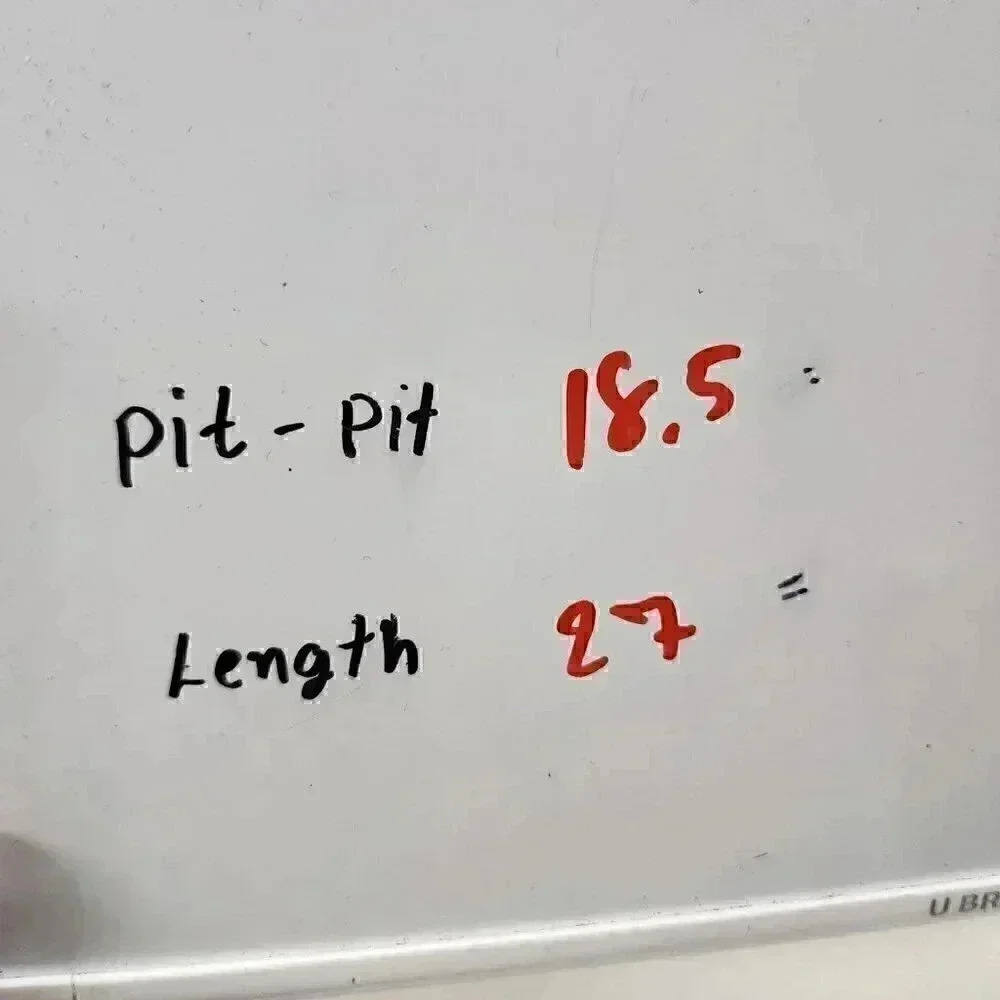 pit - pit 18.5 "
Length 27 "
U BR